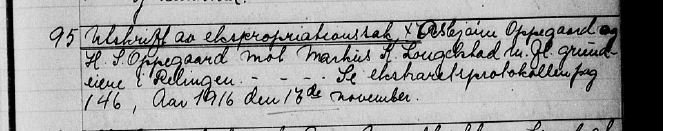 95 Utskrift av ekspropriationssak, Asbjörn Oppegaard og
H. S. Oppegaard mot Markus S. m. fl. grund-
eiere i - - - - Se ekstraretsprotokollen pag
146, Aar 1916 den 13de november.